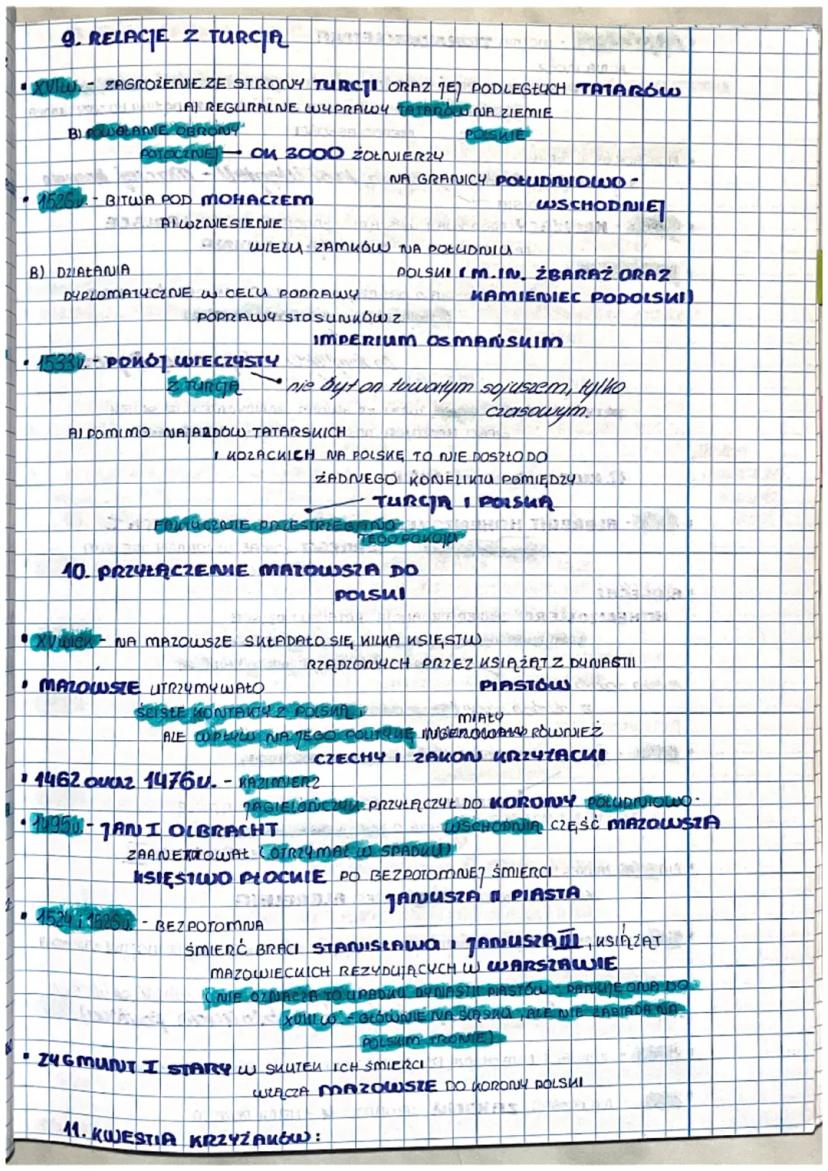 9. RELACJE Z TURCJĄ
• XVI w. - ZAGROŻENIE ZE STRONY TURCJI ORAZ JEJ PODLEGŁYCH TATARÓW
A) REGURALNE WYPRAWY TATARÓW NA ZIEMIE
POLSKIE
B) POWOŁANIE OBRONY
POTOCZNEJ → OK 3000 ŻOŁNIERZY
NA GRANICY POŁUDNIOWO-
WSCHODNIEJ
• 1526r. - BITWA POD MOHACZEM
A) WZNIESIENIE
WIELU ZAMKÓW NA POŁUDNIU
POLSKI (M.IN. ŻBARAŻ ORAZ
KAMIENIEC PODOLSKI)
B) DZIAŁANIA
DYPLOMATYCZNE W CELU POPRAWY
POPRAWY STOSUNKÓW Z
IMPERIUM OSMAŃSKIM
• 1533r. - POKÓJ WIECZYSTY
Z TURCJĄ
nie był on trwałym sojuszem, tylko
czasowym.
A) POMIMO NAJAZDÓW TATARSKICH
I KOZACKICH NA POLSKĘ TO NIE DOSZŁO DO
ŻADNEGO KONFLIKTU POMIĘDZY
TURCJĄ I POLSKĄ
FAKTYCZNIE PRZESTRZEGANO
TEGO POKOJU
10. PRZYŁĄCZENIE MAZOWSZA DO
POLSKI
• XV wiek - NA MAZOWSZE SKŁADAŁO SIĘ KILKA KSIĘSTW
RZĄDZONYCH PRZEZ KSIĄŻĄT Z DYNASTII
PIASTÓW
• MAZOWSZE UTRZYMYWAŁO
ŚCISŁE KONTAKTY Z POLSKĄ,
MIAŁY
ALE WPŁYW NA JEGO POLITYKĘ INGEROWAŁY RÓWNIEŻ
CZECHY I ZAKON KRZYŻACKI
• 1462 oraz 1476r. - KAZIMIERZ
JAGIELOŃCZYK PRZYŁĄCZYŁ DO KORONY POŁUDNIOWO-
WSCHODNIĄ CZĘŚĆ MAZOWSZA
• 1495r. - JAN I OLBRACHT
ZAANEKTOWAŁ (OTRZYMAŁ W SPADKU)
KSIĘSTWO PŁOCKIE PO BEZPOTOMNEJ ŚMIERCI
JANUSZA II PIASTA
• 1524 i 1526r. - BEZPOTOMNA
ŚMIERĆ BRACI STANISŁAWA I JANUSZA III, KSIĄŻĄT
MAZOWIECKICH REZYDUJĄCYCH W WARSZAWIE
(NIE OZNACZA TO UPADKU DYNASTII PIASTÓW - PANUJE ONA DO
XVIII W - GŁÓWNIE NA ŚLĄSKU, ALE NIE ZASIADA NA
POLSKIM TRONIE)
• ZYGMUNT I STARY W SKUTEK ICH ŚMIERCI
WŁĄCZA MAZOWSZE DO KORONY POLSKI
11. KWESTIA KRZYŻAKÓW: